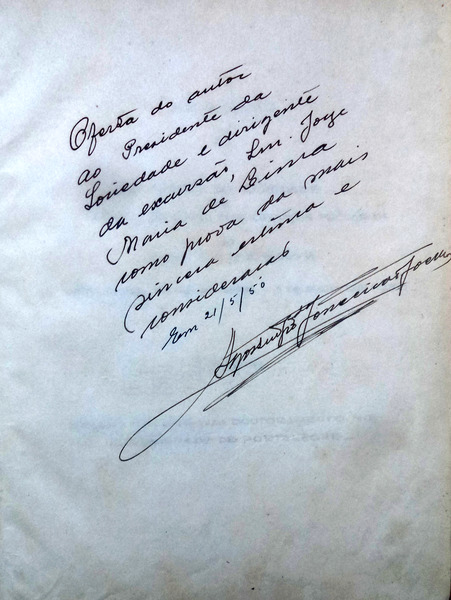 Oferta do autor
ao Presidente da
Sociedade e dirigente
da excursão, Snr. Jorge
Maria de Lima
como prova da mais
sincera estima e
consideração
Em 21/5/50